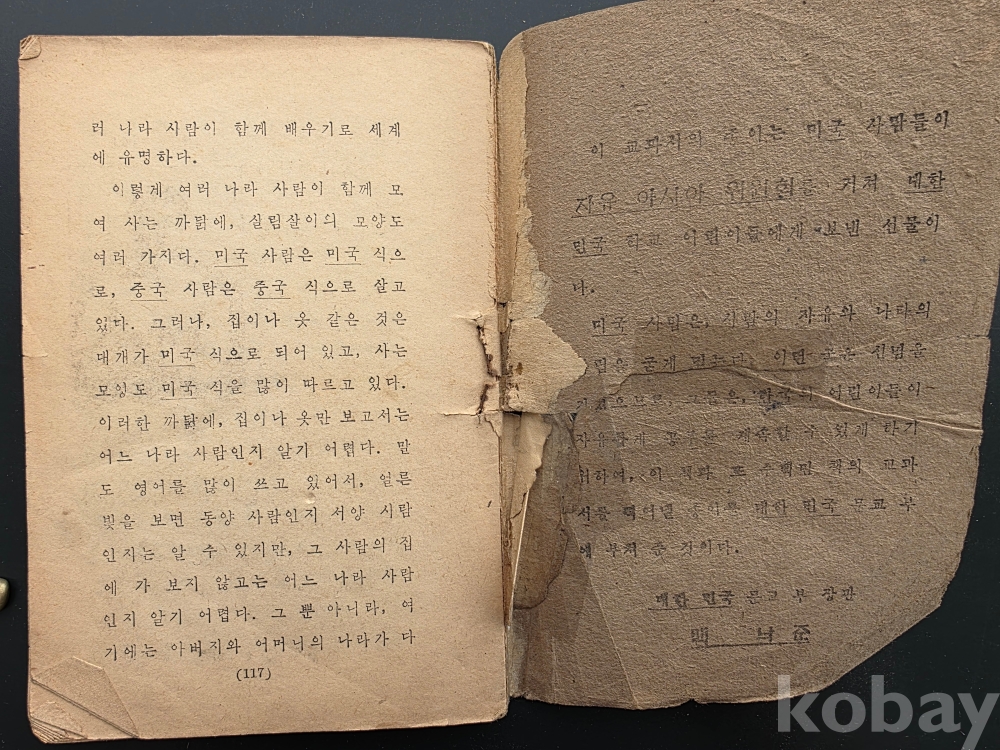 러 나라 사람이 함께 배우기로 세계
에 유명하다.
이렇게 여러 나라 사람이 함께 모
여 사는 까닭에, 살림살이의 모양도
여러 가지다. 미국 사람은 미국 식으
로, 중국 사람은 중국 식으로 살고
있다. 그러나, 집이나 옷 같은 것은
대개가 미국 식으로 되어 있고, 사는
모양도 미국 식을 많이 따르고 있다.
이러한 까닭에, 집이나 옷만 보고서는
어느 나라 사람인지 알기 어렵다. 말
도 영어를 많이 쓰고 있어서, 얼른
빛을 보면 동양 사람인지 서양 사람
인지는 알 수 있지만, 그 사람의 집
에 가 보지 않고는 어느 나라 사람
인지 알기 어렵다. 그 뿐 아니라, 여
기에는 아버지와 어머니의 나라가 다
(117)
이 교과서의 종이는 미국 사람들이
자유 아시아 위원회를 거쳐 대한
민국 학교 어린이들에게 보낸 선물이
다.
미국 사람은, 사람의 자유와 나라의
굳게 믿는다. 이런 굳은 신념을
가졌으므로, 그들은, 한국의 어린이들이
자유롭게 공부를 계속할 수 있게 하기
위하여, 이 책과 또 수백만 책의 교과
서를 박아낼 종이를 대한 민국 문교 부
에 부쳐 준 것이다.
대한 민국 문교 부 장관
백 낙 준
kobay